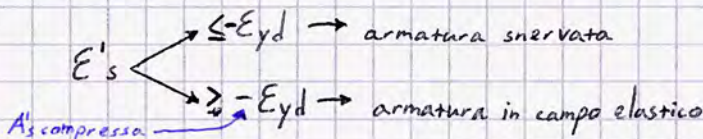 ≤-Ɛyd → armatura snervata
Ɛ's
≥ -Ɛyd → armatura in campo elastico
A's compressa